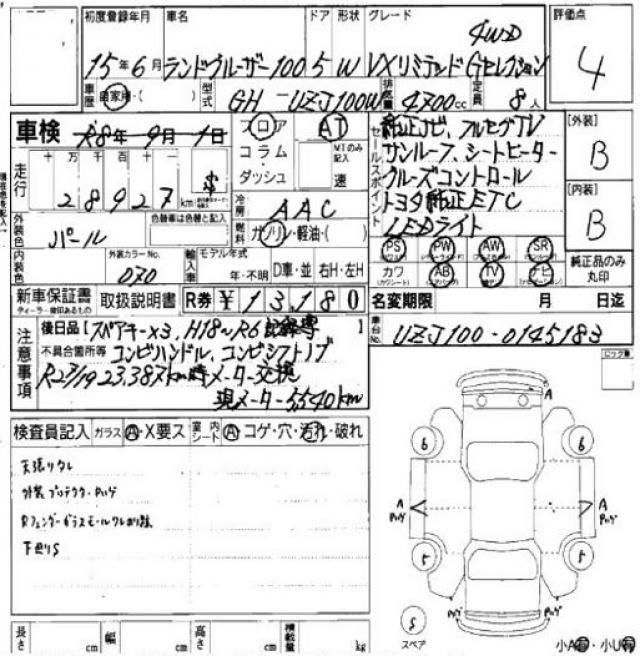 初度登録年月 車名 ドア 形状 グレード 評価点
4WD
15年6月 ランドクルーザー100 5 W VXリミテッド Gセレクション 4
車歴 自家用・( ) 型式 GH-UZJ100W 排気量 4700cc 定員 8人
車検 R8年9月1日 フロア AT
コラム MTのみ記入
ダッシュ 速
セールスポイント 純正ナビ、フルセグTV
サンルーフ、シートヒーター
クルーズコントロール
トヨタ純正ETC
LEDライト
[外装]
B
[内装]
B
走行 十万千百十一
28927km
冷房 AAC
燃料 ガソリン・軽油・( )
外装色 パール 色替車は色替と記入
内装色 外装カラーNo. 070
輸入車 モデル年式 年・不明 D車・並 右H・左H
PS PW AW SR
カワ AB TV ナビ
純正品のみ丸印
新車保証書 取扱説明書 R券 ¥13,180
ディーラー捺印あるもの
名変期限 月 日迄
車台No. UZJ100-0145183
注意事項
後日品【スペアキー×3、H18~R6記録簿】
不具合箇所等 コンビハンドル、コンビシフトノブ
R2 7/19 23,387km時メーター交換
現メーター5,540km
検査員記入 ガラス A・X要ス 室内シート A・コゲ・穴・汚れ・破れ
天張りタレ
外装プロテクターハゲ
下廻りS
A
6 6
A ハゲ A ハゲ
5 5
ハゲ ハゲ
S
スペア
小A有・小U有
長さ cm 幅 cm 高さ cm 積載量 kg